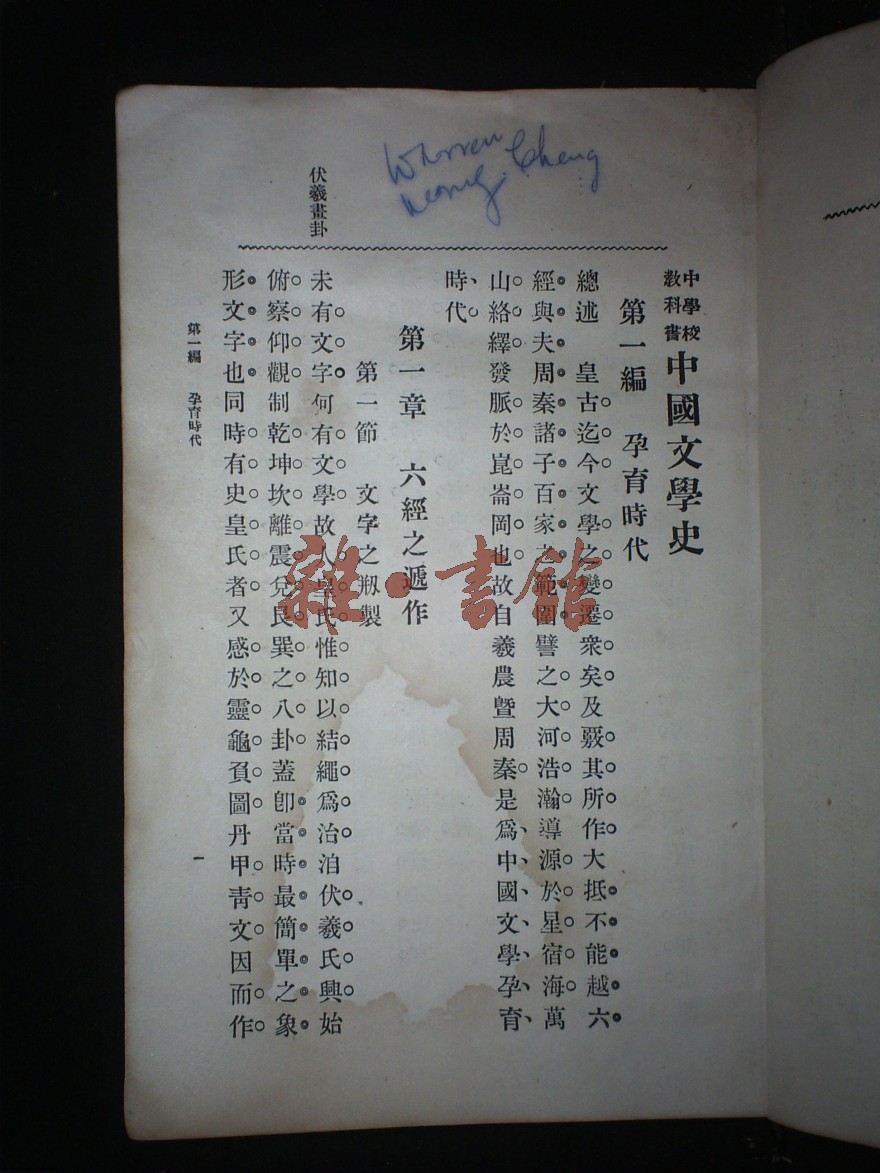 中學校
教科書
中國文學史
第一編　孕育時代
總述　皇古迄今文學之變遷衆矣及覈其所作大抵不能越六
經與夫周秦諸子百家之範圍譬之大河浩瀚導源於星宿海萬
山絡繹發脈於崑崙岡也故自羲農曁周秦是爲中國文學孕育
時代
第一章　六經之遞作
第一節　文字之剏製
伏羲畫卦
未有文字何有文學故人皇氏惟知以結繩爲治洎伏羲氏興始
俯察仰觀制乾坤坎離震兌艮巽之八卦蓋卽當時最簡單之象
形文字也同時有史皇氏者又感於靈龜負圖丹甲靑文因而作
第一編　孕育時代
一
Warren
Cheng
雜·書館